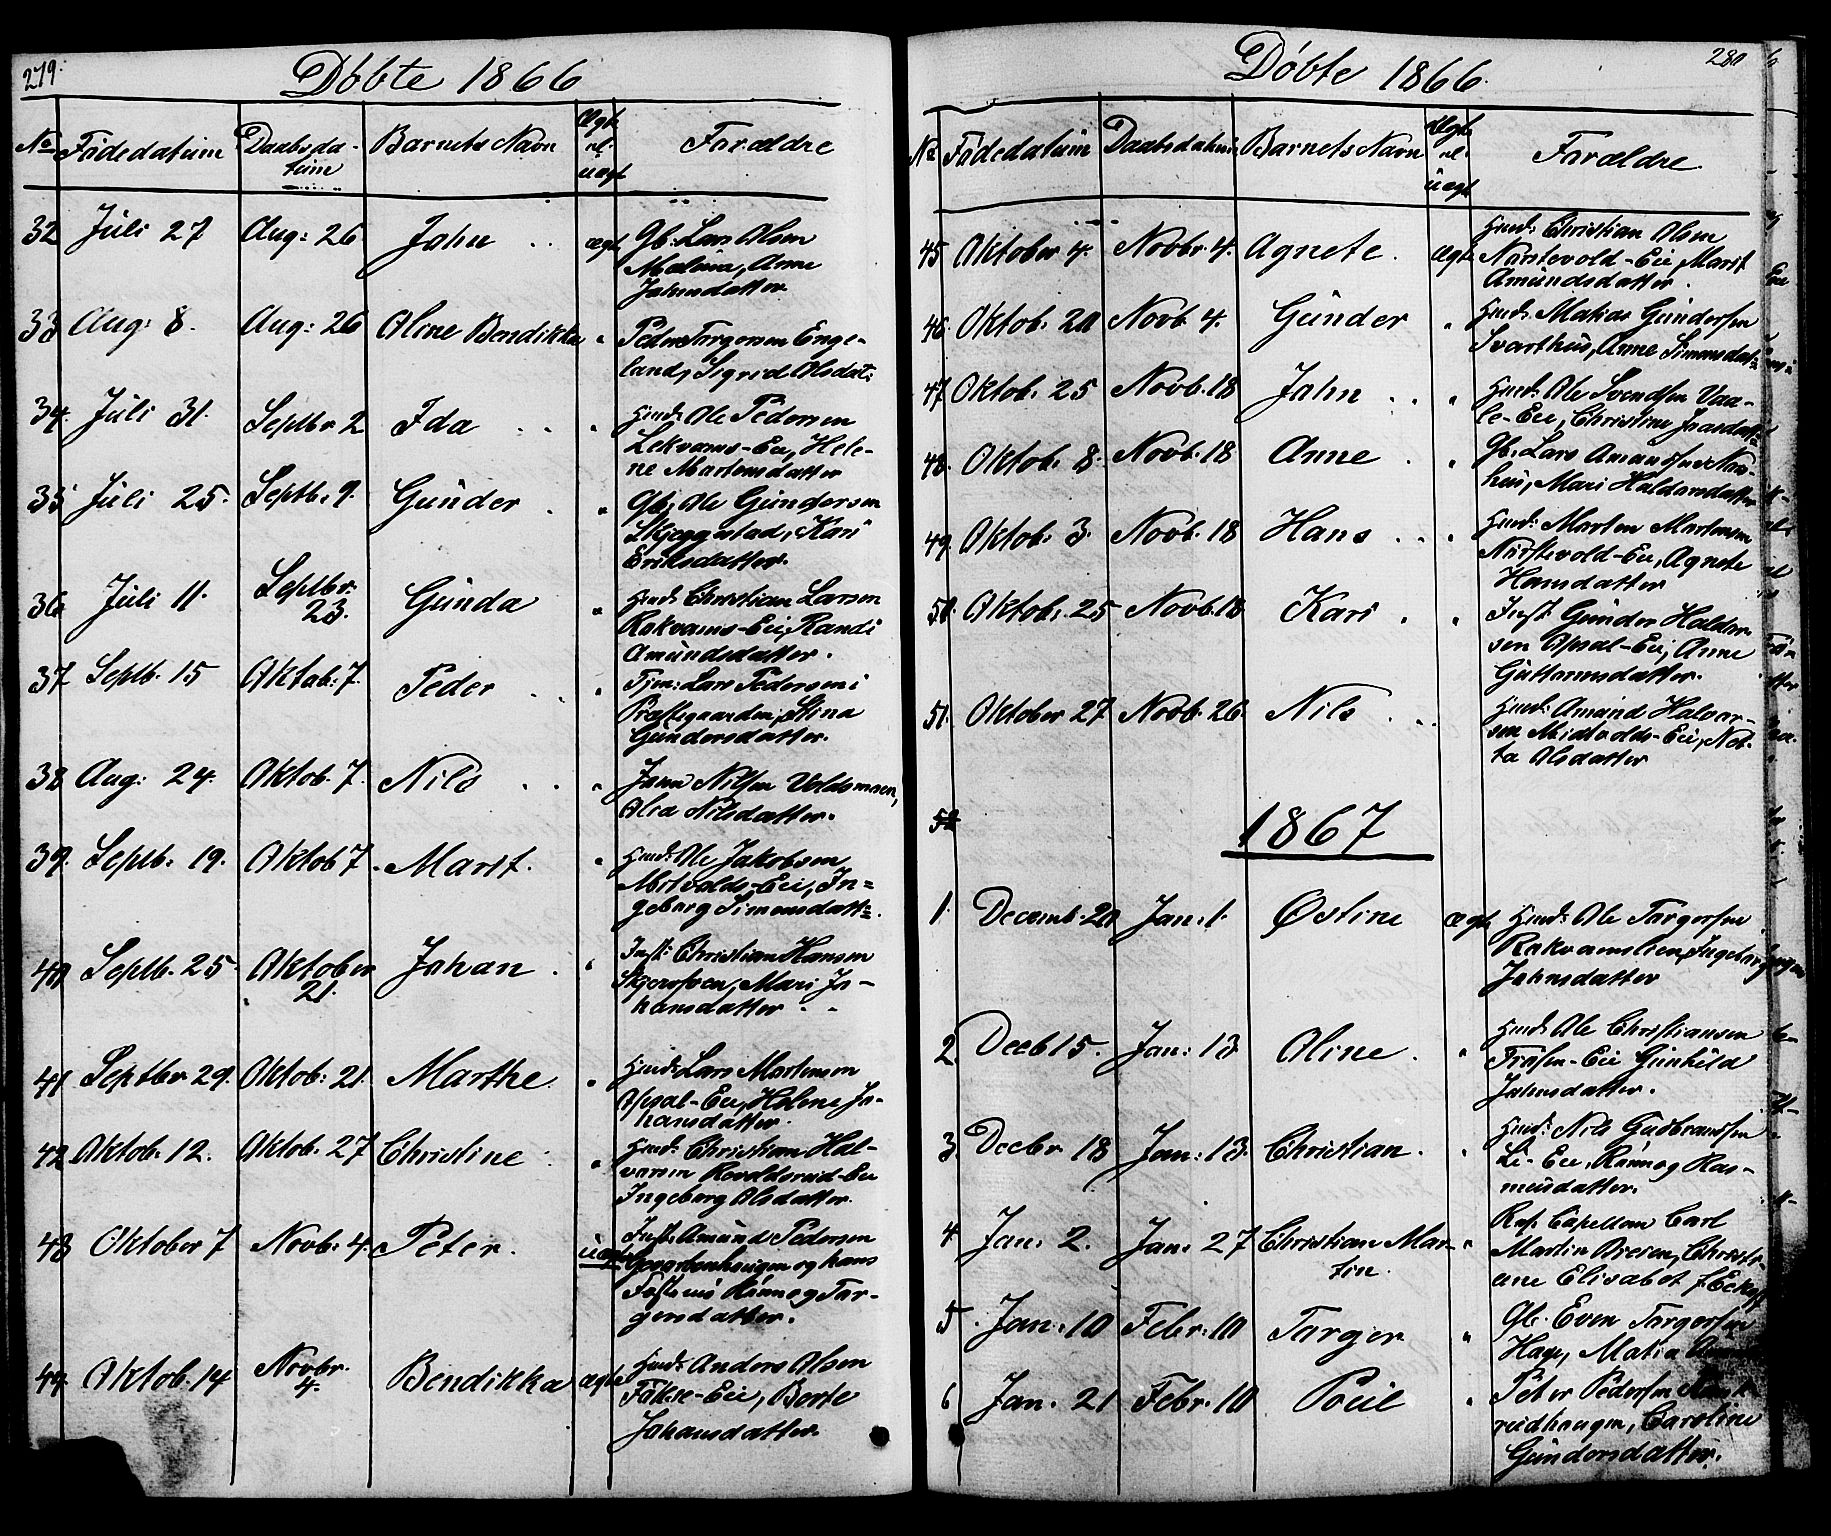 279.
Döbte 1866
No Födedatum Daabsda- Barnets Navn Ægte Forældre
tum el.
uægt
32 Juli 27 Aug: 26 John .. ægt. Gb: Lars Olsen
Anne
Johnsdatter
33 Aug: 8. Aug: 26 Oline Bendikka " Peder Torgersen Enge-
land, Sigrid Olsdat:
34. Juli 31. Septbr 2 Ida ... " Husm: Ole Pedersen
Lekvams-Eie, Hele-
ne Martensdatter
35 Juli 25. Septb: 9. Gunder . " Gb: Ole Gundersen
Skjeggestad, Kari
Eriksdatter.
36. Juli 11. Septbr. Gunda " Husm: Christian Larsen
23. Rokvams-Eie, Randi
Amundsdatter.
37 Septb. 15 Oktob: 7. Peder .. " Tjen: Lars Pedersen i
Præstegaarden, Stina
Gundersdatter.
38 Aug: 24. Oktob. 7. Nils .. " Nilsen
Olea Nilsdatter.
39. Septb: 19. Oktob 7. Marit. " Husm: Ole Jakobsen
Mitvolds-Eie, In=
geborg Simensdatt=
40 Septb. 25 Oktober Johan . " Inst: Christian Hansen
21. Mari Jo-
hansdatter
41 Septbr 29. Oktob: 21. Marthe. " Husm: Lars Martensen
Opsal-Eie, Helene Jo-
hansdatter.
42 Oktob. 12. Oktob. 27 Christine . " Husm: Christian Hal-
vorsen
Ingeborg Olsdatter.
43 Oktober 7 Novb: 4. Peter. uægte Inst: Amund Pedersen
og hans
Fæstemö Rönnog Tor-
gersdatter.
44. Oktob. 14 Novbr. Bendikka ægte Husm: Anders Olsen
4. Fokse-Eie, Berte
Johansdatter.
280
Döbte 1866.
No Födedatum Daabsdatum Barnets Navn Ægte Forældre
el.
uægt
45 Oktober 4. Novbr 4. Agnete. ægt. Husm: Christian Olsen
Nörstevold-Eie, Marit
Amundsdatter.
46. Oktob. 20 Novb. 4. Gunder " Husm: Matias Gundersen
Svarthus, Anne Simensdat=
47 Oktob. 25 Novb. 18 John .. " Husm: Ole Svendsen Vaa-
le-Eie, Christine
48. Oktob. 8. Novb. 18 Anne . " Gb: Lars Amundsen Nor-
hus, Mari Haldorsdatter
49. Oktob. 3. Novb. 18 Hans ... Husm: Marten Martensen
Nörstevold-Eie, Agnete
Hansdatter
50. Oktob. 25 Novb. 18 Kari . " Inst: Gunder Haldor-
sen Opsal-Eie, Anne
Guttormsdatter.
51. Oktober 27 Novb. 26. Nils ... Husm: Amund Halvor-
sen Midtvolds-Eie, Net-
ta Olsdatter
52
1867
1. Decemb. 20 Jan: 1. Østine ægt. Husm: Ole Torgersen
Rokvamslien, Ingeborg
Johnsdatter
2. Decb 15. Jan: 13 Oline . " Husm: Ole Christiansen
Gunhild
Johnsdatter.
3. Decbr 18 Jan: 13. Christian. " Husm: Nils Gudbrandsen
Li-Eie, Rönnog Ras-
musdatter.
4 Jan: 2. Jan: 27 Christian Mar- " Capellan Carl
tin. Martin Christi-
ane Elisabet f.
5. Jan: 10 Febr: 10 Torger " Gb. Even Torgersen
Hage, Matia
6 Jan. 21 Febr. 10 Poul " Peter Pedersen
Caroline
Gundersdatter.